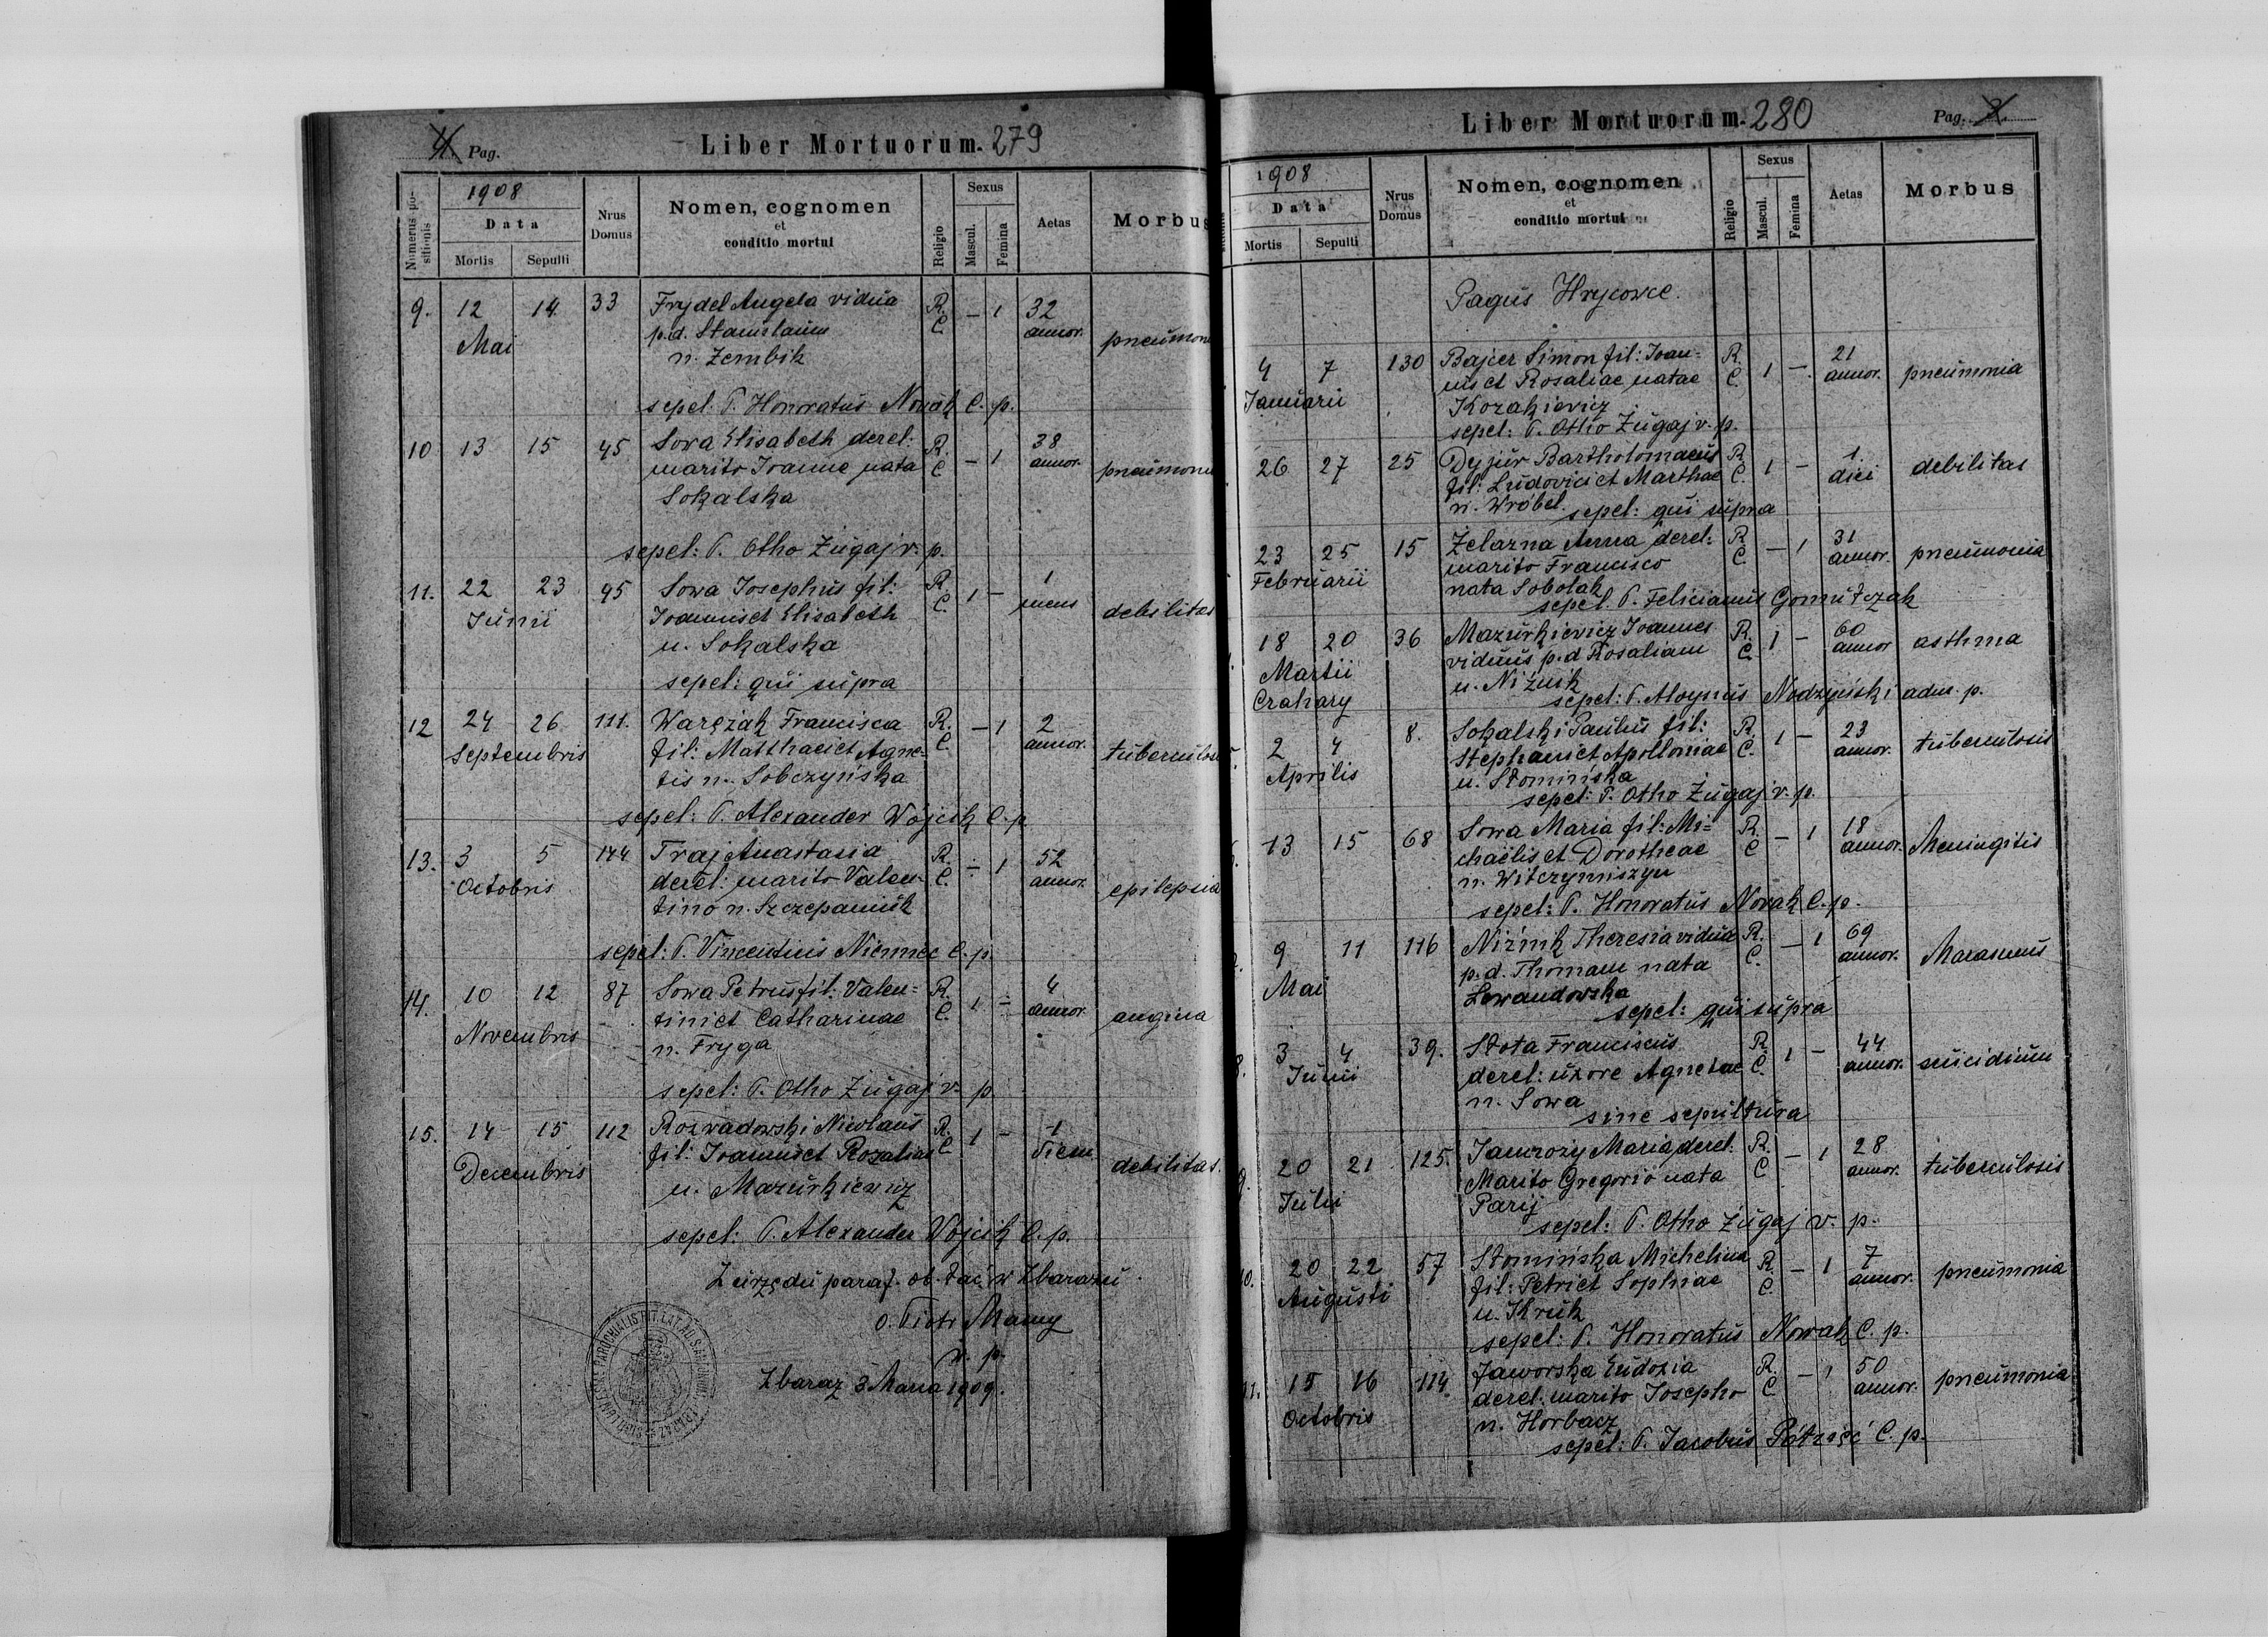 4 Pag.
Liber Mortuorum. 279
Numerus positionis
1908
Data
Mortis
Sepulti
Nrus Domus
Nomen, cognomen
et
conditio mortui
Religio
Sexus
Mascul.
Femina
Aetas
Morbus
9. 12 14 33 Frydel Angela vidua R. – 1 32
Mai p.d. Stanislaum C. annor. pneumon
n. Zembik
sepel: P. Honoratus Novak C. p.
10 13 15 45 Sowa Elisabeth derel. R. – 1 38
marito Joanne nata C annor. pneumon
Sokalska
sepel: P. Otho Żugaj v. p.
11. 22 23 95 Sowa Josephus fil: R. 1 – 1
Junii Joannis et Elisabeth C. mens debilitas
n. Sokalska
sepel: qui supra
12 24 26 111. Waręzak Francisca R. – 1 2
Septembris fil: Matthaei et Agne- C. annor. tuberculos
tis n. Sobczyńska
sepel: P. Alexander Wójcik C. p
13. 3 5 144 Traj Anastasia R. – 1 52
Octobris derel: marito Valen- C. annor. epilepsia
tino n. Szczepaniuk
sepel: P. Vincentius Niemiec C. p.
14. 10 12 87 Sowa Petrus fil: Valen= R. 1 – 4
Novembris tini et Catharinae C. annor. angina
n. Fryga
sepel: P. Otho Żugaj v. p.
15. 14 15 112 Rozwadowski Nicolaus R. 1 – 1
Decembris fil: Joannis et Rozaliae C diem debilitas.
n. Mazurkiewicz
sepel: P. Alexander Wojcik C. p.
Z urzędu paraf. ob. łać. w Zbarażu
o. Piotr Mamy
v. p.
Zbaraż 3 Marca 1909.
Liber Mortuorum. 280
Pag. 2
1908
Data
Mortis
Sepulti
Nrus Domus
Nomen, cognomen
et
conditio mortui
Religio
Sexus
Mascul.
Femina
Aetas
Morbus
Pagus Hrycowce.
4 7 130 Bajcer Simon fil: Joan= R. 1 – 21
Januarii nis et Rosaliae natae C. annor. pneumonia
Kozakiewicz
sepel: P. Otho Żugaj v. p.
26 27 25 Dyjur Bartholomaeus R 1 – 1.
fil: Ludovici et Marthae C. diei debilitas
n. Wróbel. sepel: qui supra
23 25 15 Żelazna Anna derel: R – 1 31
Februarii marito Francisco C. annor. pneumonia
nata Sobolak
sepel. P. Felicianus
18 20 36 Mazurkiewicz Joannes R. 1 – 60
Martii viduus p.d Rosaliam C. annor asthma
Czahary n. Niżnik
sepel: P. Aloysius Nodzyński adm. p.
2 4 8. Sokalski Paulus fil: R. 1 – 23
Aprilis Stephani et Apolloniae C. annor. tuberculosis
n. Słomińska
sepel: P. Otho Żugaj v. p.
13 15 68 Sowa Maria fil: Mi= R. – 1 18
chaëlis et Dorotheae C annor. Meningitis
n. Witczyniszyn
sepel: P. Honoratus Novak C. p.
9 11 116 Niżnik Theresia vidua R. – 1 69
Mai p.d. Thomam nata C. annor. Marasmus
Lewandowska
sepel: qui supra
8. 3 4 39. Słota Franciscus R. 1 – 44
Junii derel: uxore Agnetae C. annor. suicidium
n. Sowa
sine sepultura
9. 20 21 125. Jamrozy Maria derel: R. – 1 28
Julii Marito Gregorio nata C annor. tuberculosis
Parij
sepel: P. Otho Żugaj v. p.
10. 20 22 57 Słomińska Michelina R. – 1 7
Augusti fil: Petri et Sophiae C. annor. pneumonia
n. Kruk
sepel: P. Honoratus Nowak C. p.
11. 15 16 114. Jaworska Eudoxia R. – 1 50
Octobris derel. marito Josepho C. annor. pneumonia
n. Horbacz
sepel: P. Jacobus C. p.